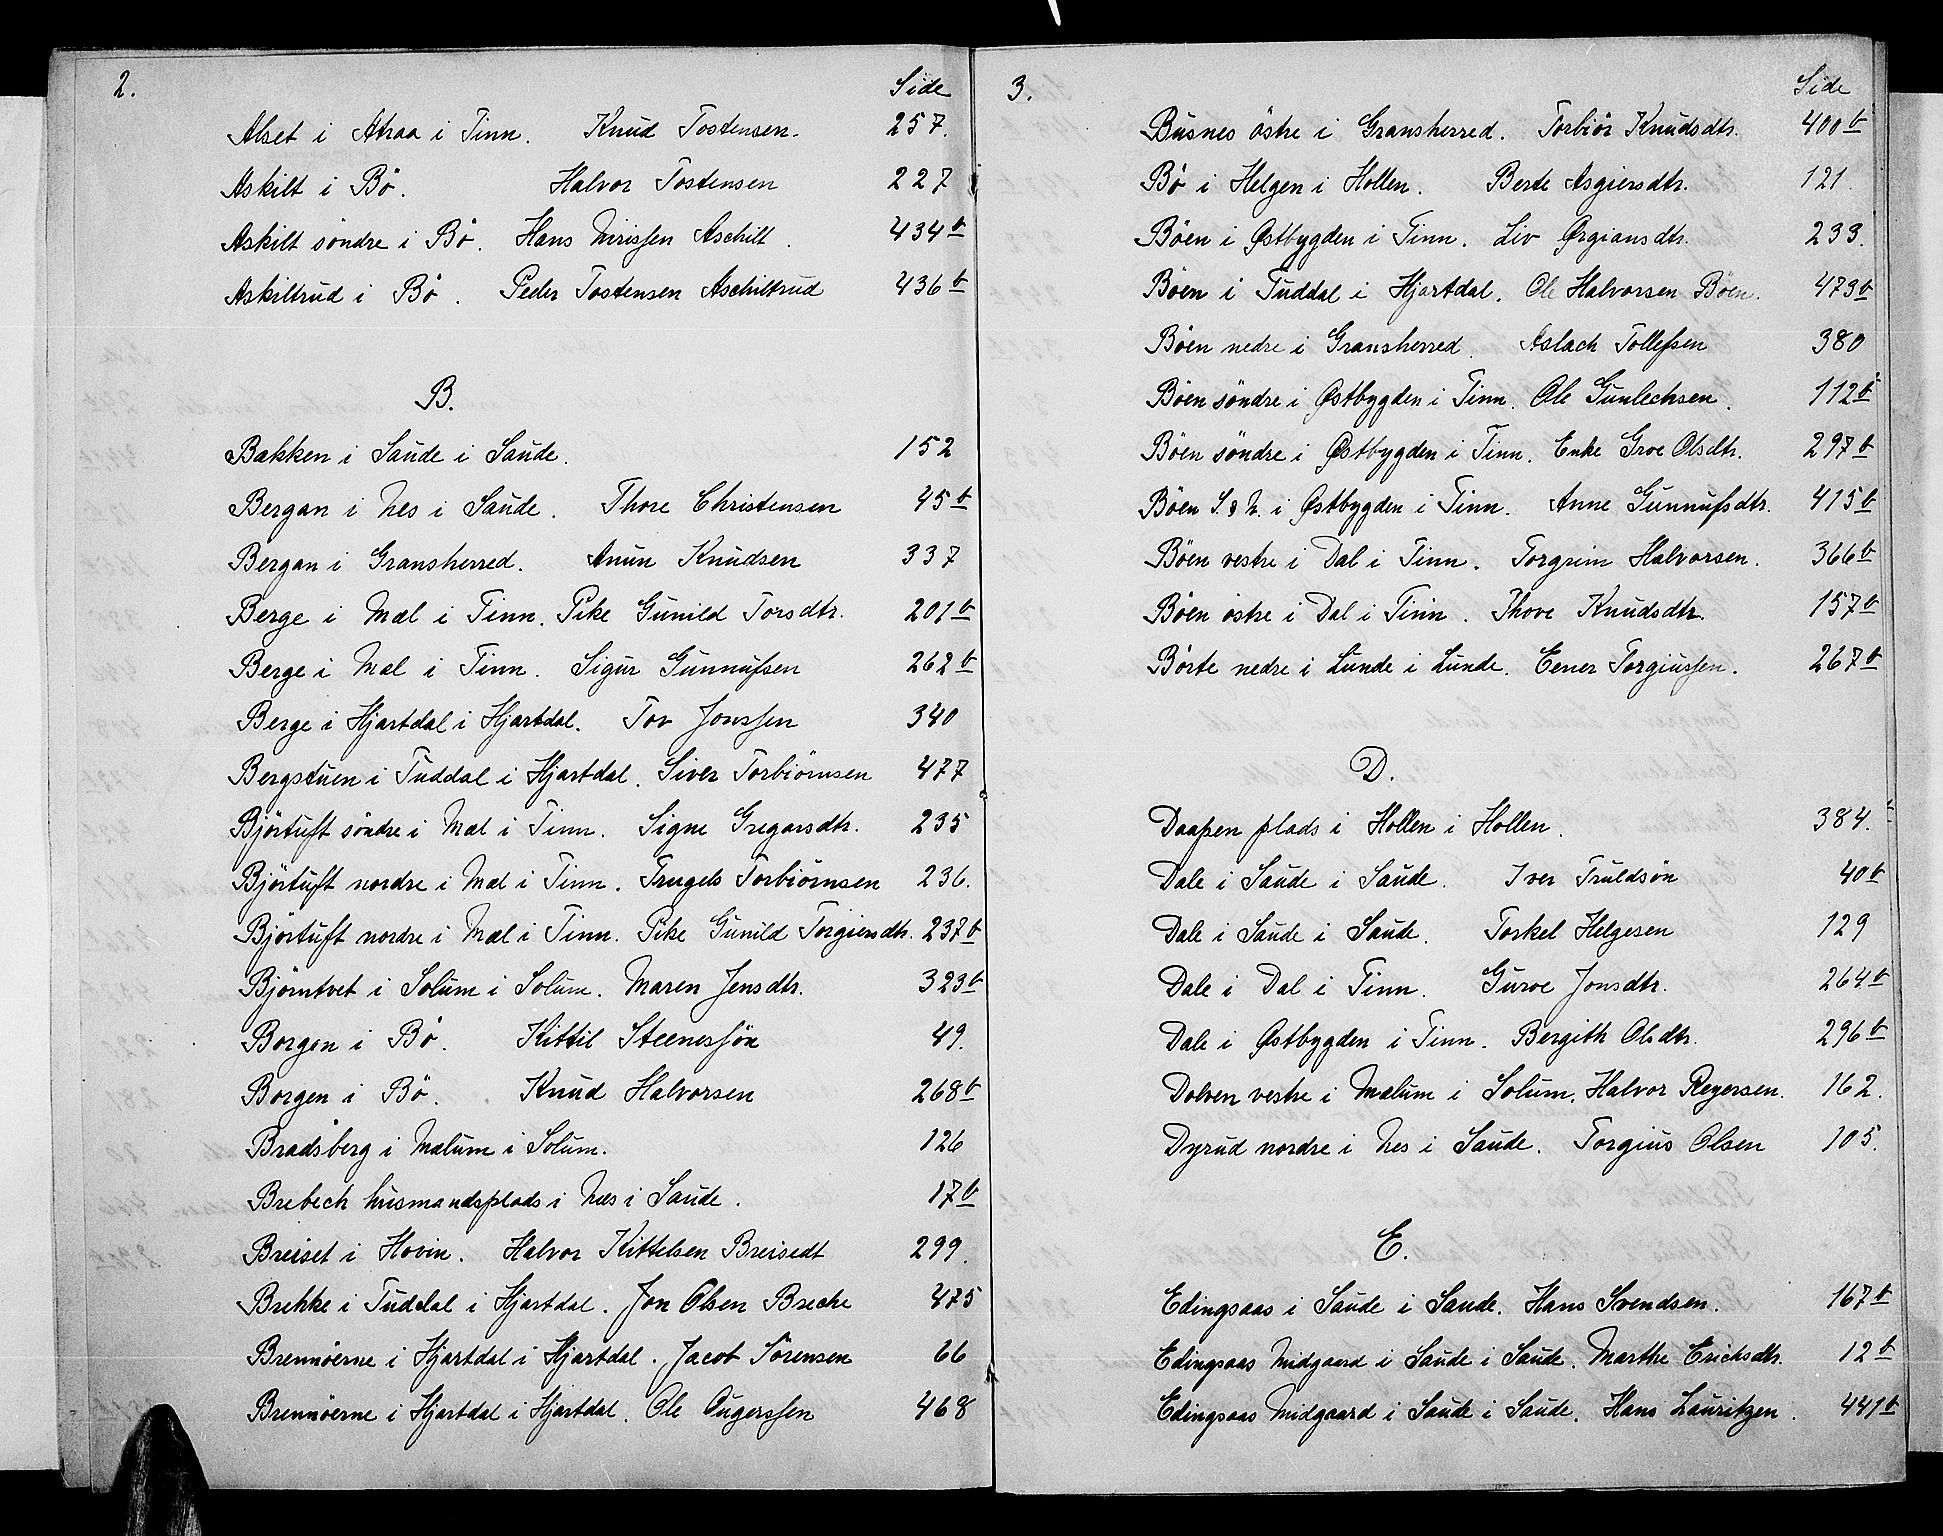 2.
Side
Alset i Atraa i Tinn. Knud Tostensen. 257.
Askilt i Bö. Halvor Tostensen 227
Askilt söndre i Bö. Hans Nirissen Aschilt. 434b
Askiltrud i Bö. Peder Tostensen Aschiltrud 436b
B.
Bakken i Saude i Saude. 152
Bergan i Nes i Saude. Thore Christensen 45b
Bergan i Gransherred. Anun Knudsen 337
Berge i Mæl i Tinn. Pike Gunild Torsdtr. 201b
Berge i Mæl i Tinn. Sigur Gunnufsen 262b
Berge i Hjartdal i Hjartdal. Tov Jonssen 340
Bergstuen i Tuddal i Hjartdal. Siver Torbiörnsen 477
Björtuft söndre i Mæl i Tinn. Signe Gregarsdtr. 235
Björtuft nordre i Mæl i Tinn. Trugels Torbiörnsen 236.
Björtuft nordre i Mæl i Tinn. Pike Gunild Torgiersdtr. 237b
Björntvet i Solum i Solum. Maren Jensdtr. 323b
Borgen i Bö. Kittil Steenessön 49.
Borgen i Bö. Knud Halvorsen 268b
Bradsberg i Mælum i Solum. 126
Brebech husmandsplads i Næs i Saude. 17b
Breiset i Hovin. Halvor Kittelsen Breisedt 299.
Brekke i Tuddal i Hjartdal. Jon Olsen Breche 475
Brennöerne i Hjartdal i Hjartdal. Jacob Sörensen 66
Brennöerne i Hjartdal i Hjartdal. Ole Ougerssen 468
3.
Side
Busnes östre i Gransherred. Torbiör Knudsdtr. 400b
Bö i Helgen i Hollen. Berte Asgiersdtr. 121.
Böen i Østbygden i Tinn. Liv Ørgiansdtr. 233.
Böen i Tuddal i Hjartdal. Ole Halvorsen Böen. 473b
Böen nedre i Gransherred. Aslach Tollefsen 380
Böen söndre i Østbygden i Tinn. Ole Gunlechsen. 112b
Böen söndre i Østbygden i Tinn. Enke Groe Olsdtr. 297b
Böen S. & N. i Østbygden i Tinn. Anne Gunnufsdtr. 415b
Böen vestre i Dal i Tinn. Torgrim Halvorsen. 366b
Böen östre i Dal i Tinn. Thove Knudsdtr. 157b
Börte nedre i Lunde i Lunde. Eener Torgiussen. 267b
D.
Daapen plads i Hollen i Hollen. 384.
Dale i Saude i Saude. Iver Truldsön 40b
Dale i Saude i Saude. Torkel Helgesen 129
Dale i Dal i Tinn. Guroe Jonsdtr. 264b
Dale i Østbygden i Tinn. Bergith Olsdtr. 296b
Dolven vestre i Mælum i Solum. Halvor Reyersen. 162.
Dyrud nordre i Nes i Saude. Torgius Olsen 105.
E.
Edingsaas i Saude i Saude. Hans Svendsen. 167b
Edingsaas Midgaard i Saude i Saude. Marthe Erichsdtr. 12b
Edingsaas Midgaard i Saude i Saude. Hans Lauritzen. 441b